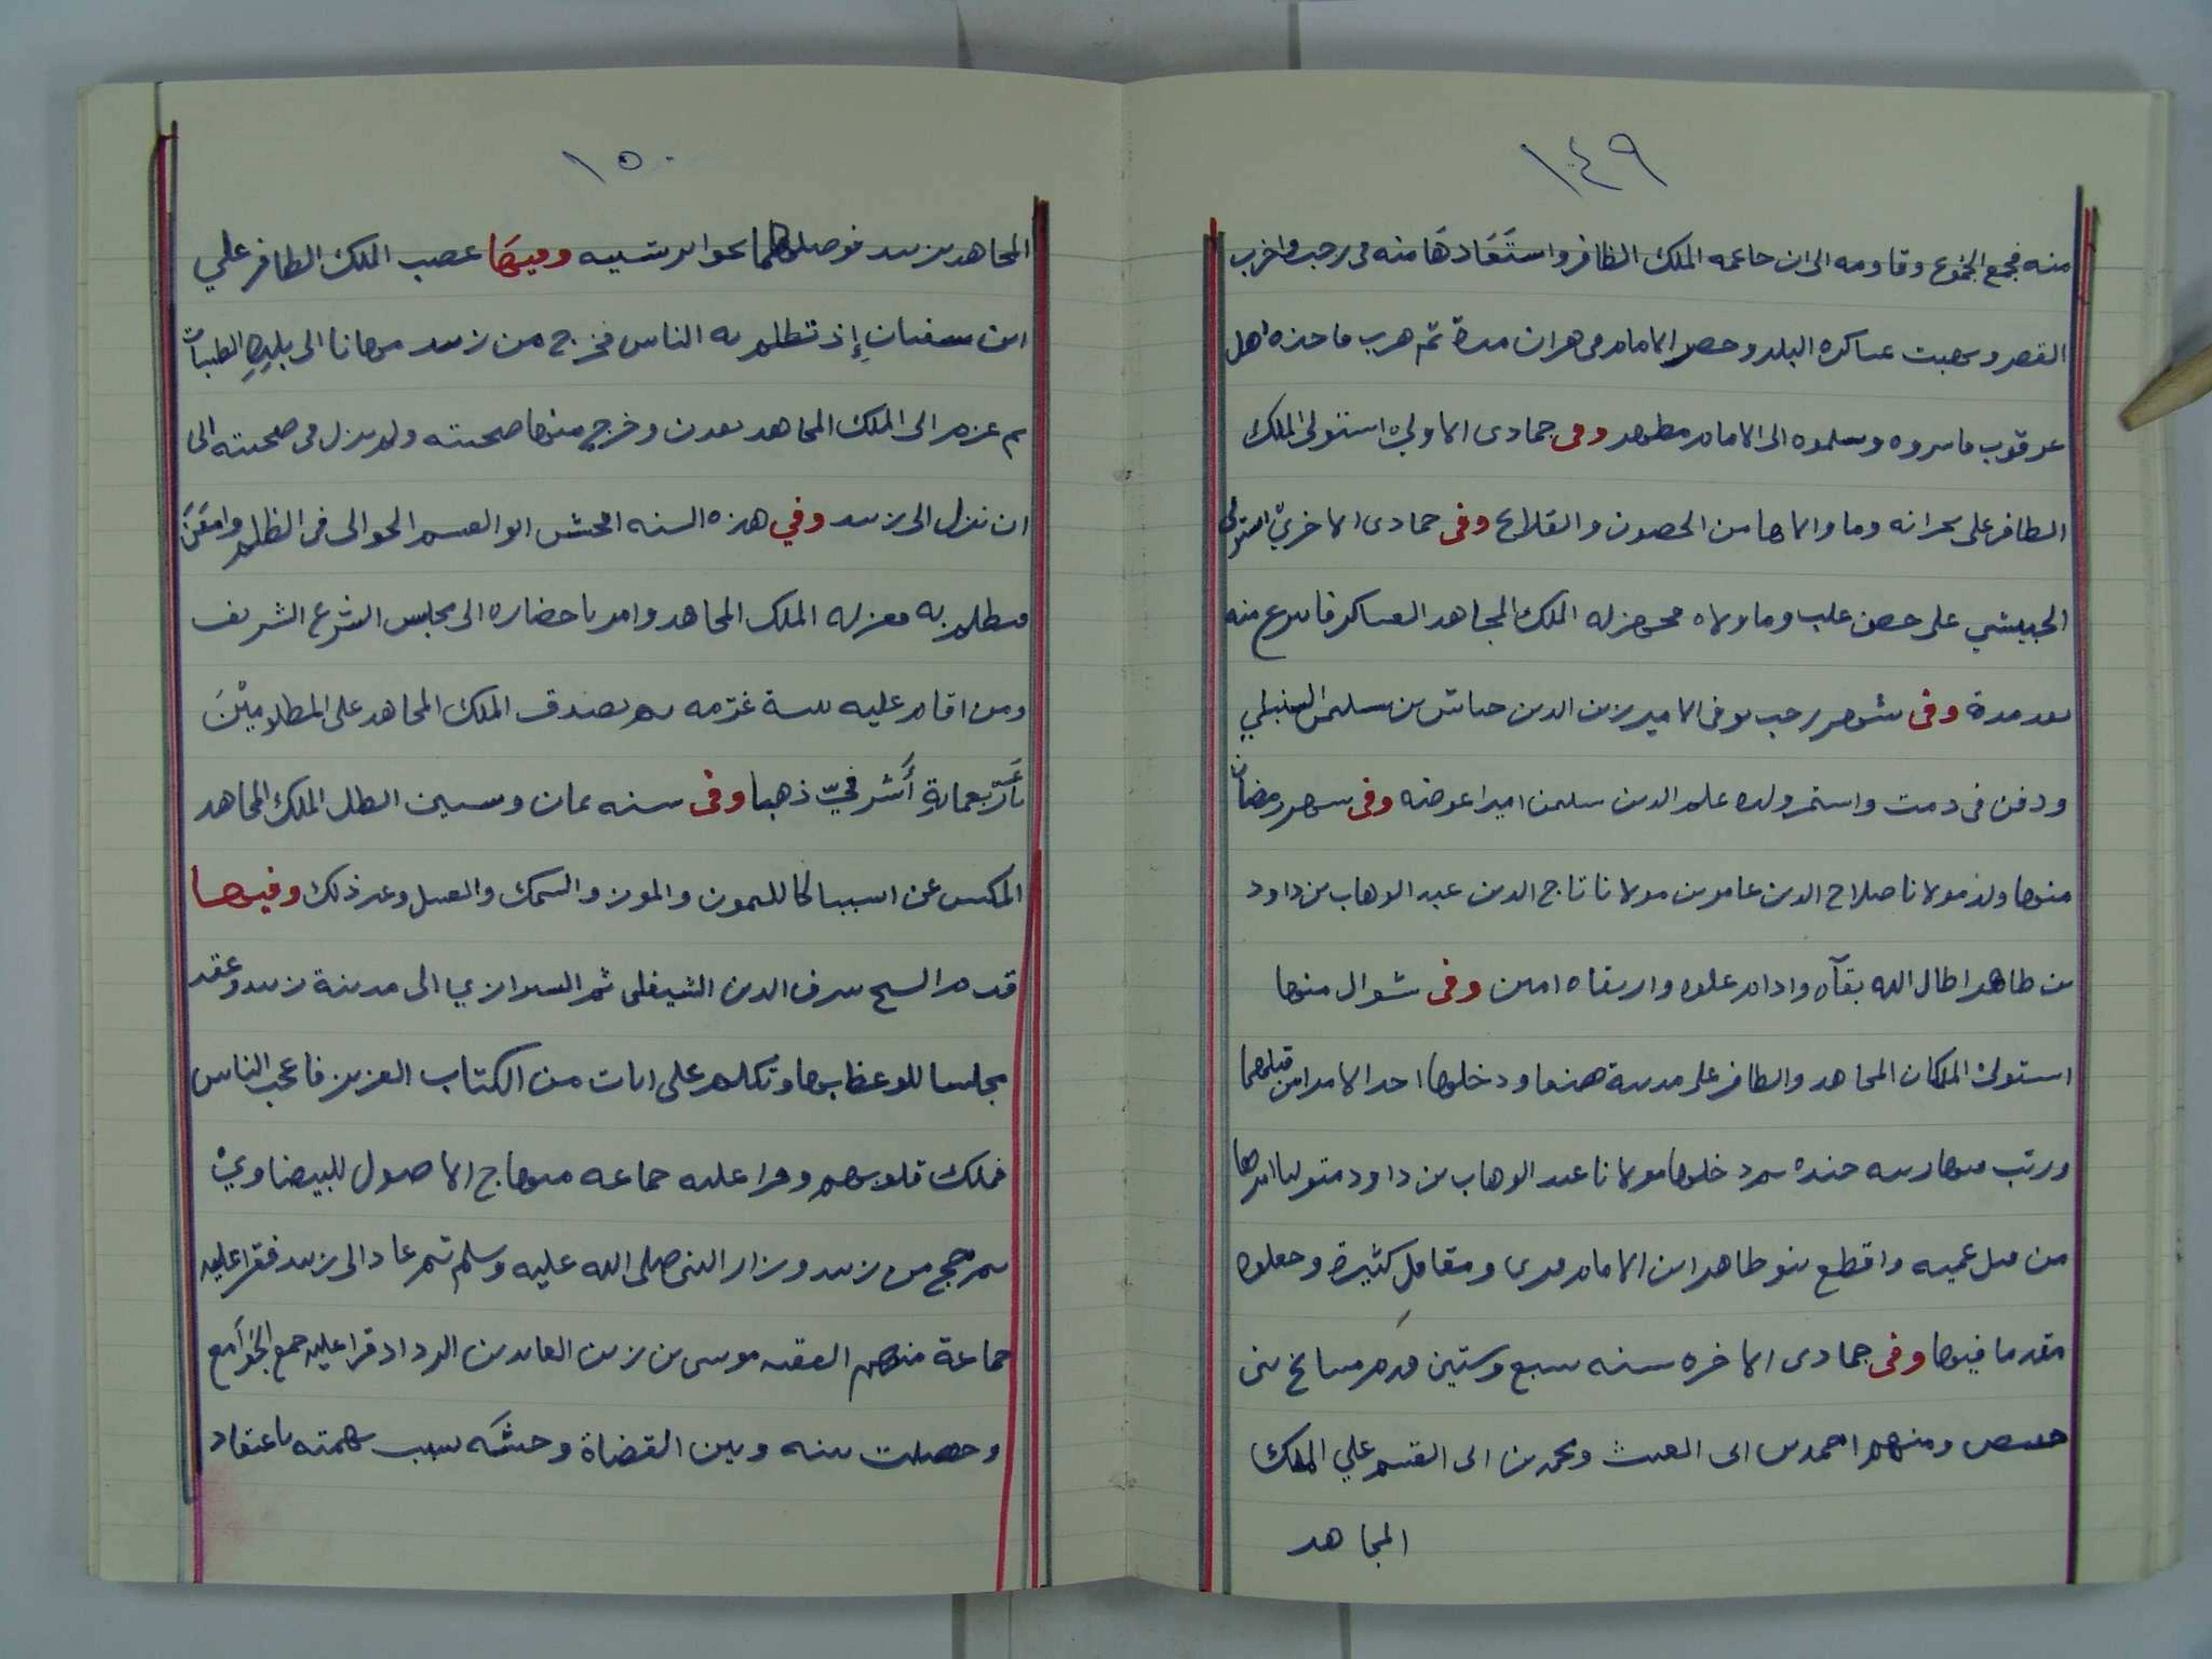 ١٤٩
منه فجمع الجموع وقاومه الى ان جا عمه الملك الظافر واستعادها منه فى رجب واخرب
القصر ونهبت عساكره البلد وحصر الامام فى هران مدة ثم هرب فاخذه اهل
عرقوب فاسروه وسلموه الى الامام مطهر وفى جمادى الاولى استولى الملك
الظافر على بحرانه وما والاها من الحصون والقلاع وفى جمادى الاخرى استولى
الحبيشي على حصن علب وما ولاه فجهز له الملك المجاهد العساكر فانتزع منه
بعد مدة وفى شهر رجب توفى الامير زين الدين جياش بن سليمن السنبلي
ودفن فى دمت واستمر ولده علم الدين سليمن اميرا عوضه وفى شهر رمضان
منها ولد مولانا صلاح الدين عامر بن مولانا تاج الدين عبد الوهاب بن داود
بن طاهر اطال الله بقآه وادام علوه وارتقاه امين وفى شوال منها
استولى الملكان المجاهد والظافر على مدينة صنعا ودخلها احد الامرا من قبلهما
ورتب فيها رتبه جيده ثم دخلها مولانا عبد الوهاب بن داود متوليا امرها
من قبل عميه واقطع بنو طاهر ابن الامام قرى ومقامل كثيرة وجعلوه
مقدما فيها وفى جمادى الاخره سنه سبع وستين قدم مشايخ بنى
حفيص ومنهم احمد بن ابى الغيث ومحمد بن ابى القسم علي الملك
المجاهد
١٥٠
المجاهد بزبيد فوصلهما بحوالر سنيه وفيها غصب الملك الظافر علي
ابن سفيان إذ تظلم به الناس فخرج من زبيد مهانا الى بليده الطيبات
ثم عزم الى الملك المجاهد بعدن وخرج منها صحبته ولم يزل فى صحبته الى
ان نزل الى زبيد وفي هذه السنه افحش ابو القسم الحوالى فى الظلم وامعن
فتظلم به فعزله الملك المجاهد وامر باحضاره الى مجلس الشرع الشريف
ومن اقام عليه بينة غرمه ثم تصدق الملك المجاهد على المظلومين
بأربعماية أشرفيّ ذهبا وفى سنه ثمان وستين ابطل الملك المجاهد
المكس عن اسبيا كالليمون والموز والسمك والعسل وغير ذلك وفيها
قدم الشيخ شرف الدين الشيفلى ثم الشيرازي الى مدينة زبيد وعقد
مجلسا للوعظ بها وتكلم على ايات من الكتاب العزيز فاعجب الناس
فملك قلوبهم وقرا عليه جماعه منهاج الاصول للبيضاوي
ثم حج من زبيد وزار النبى صلى الله عليه وسلم ثم عاد الى زبيد فقرا عليه
جماعة منهم الفقيه موسى بن زين العابدين الرداد قرا عليه جمع الجوامع
وحصلت بينه وبين القضاة وحشه بسبب تهمته باعتقاد